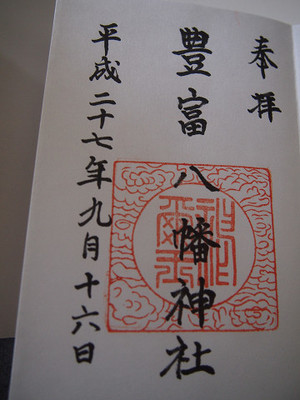 奉拝
豊富八幡神社
平成二十七年九月十六日